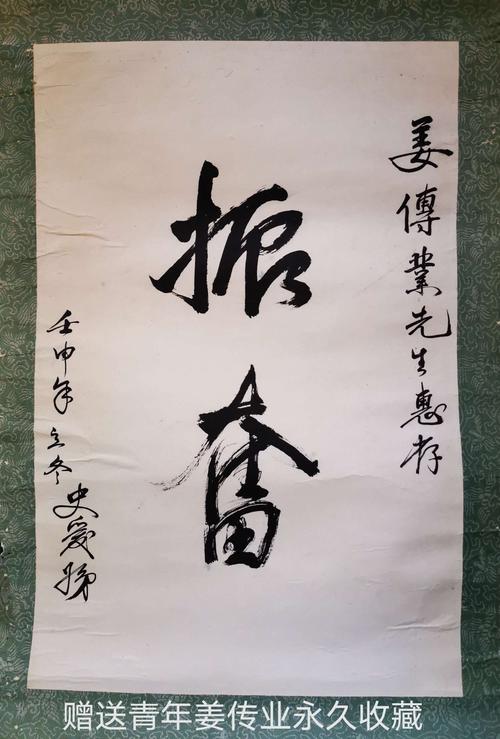 姜傳業先生惠存
振奮
壬申年立冬
史
赠送青年姜传业永久收藏